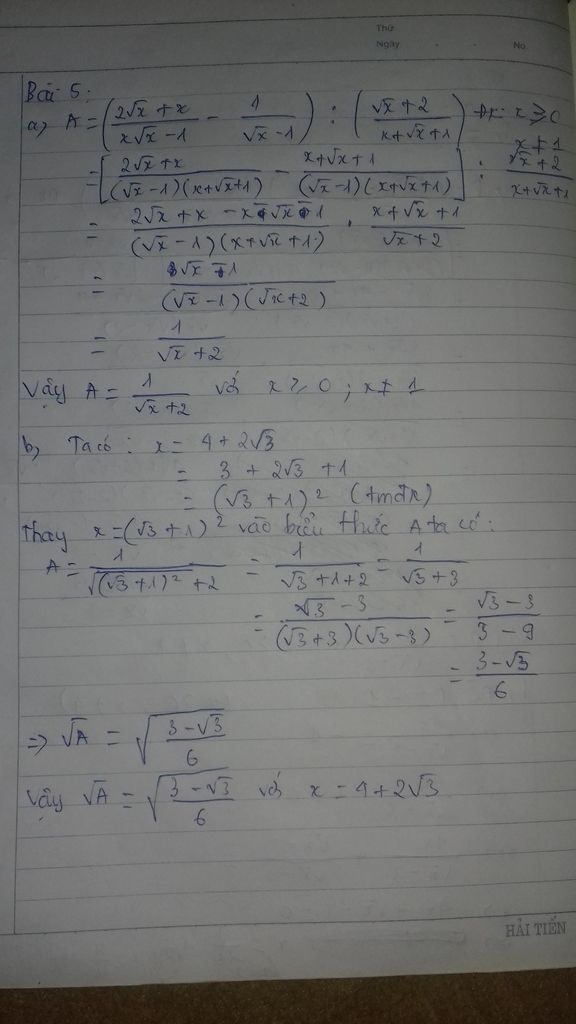 Thứ
Ngày . . No.
Bài 5:
a, A = ((2√x + x)/(x√x - 1) - 1/(√x - 1)) : ((√x + 2)/(x + √x + 1)) Đk: x ≥ 0
x ≠ 1
= [(2√x + x)/((√x - 1)(x + √x + 1)) - (x + √x + 1)/((√x - 1)(x + √x + 1))] : (√x + 2)/(x + √x + 1)
= (2√x + x - x - √x - 1)/((√x - 1)(x + √x + 1)) . (x + √x + 1)/(√x + 2)
= (√x - 1)/((√x - 1)(√x + 2))
= 1/(√x + 2)
Vậy A = 1/(√x + 2) với x ≥ 0 ; x ≠ 1
b, Ta có : x = 4 + 2√3
= 3 + 2√3 + 1
= (√3 + 1)² (tmđk)
Thay x = (√3 + 1)² vào biểu thức A ta có:
A = 1/(√(√3 + 1)² + 2) = 1/(√3 + 1 + 2) = 1/(√3 + 3)
= (√3 - 3)/((√3 + 3)(√3 - 3)) = (√3 - 3)/(3 - 9)
= (3 - √3)/6
=> √A = √((3 - √3)/6)
Vậy √A = √((3 - √3)/6) với x = 4 + 2√3
HẢI TIẾN